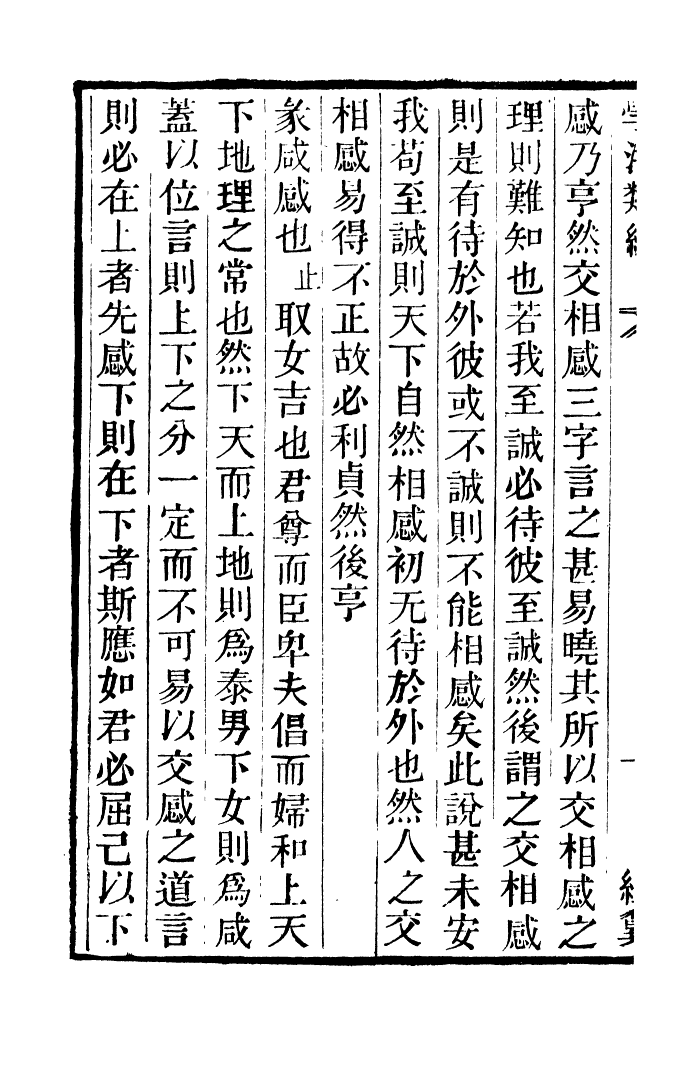 感乃亨然交相感三字言之甚易曉其所以交相感之
理則難知也若我至誠必待彼至誠然後謂之交相感
則是有待於外彼或不誠則不能相感矣此說甚未安
我苟至誠則天下自然相感初无待於外也然人之交
相感易得不正故必利貞然後亨
彖咸感也止取女吉也君尊而臣卑夫倡而婦和上天
下地理之常也然下天而上地則爲泰男下女則爲咸
蓋以位言則上下之分一定而不可易以交感之道言
則必在上者先感下則在下者斯應如君必屈己以下